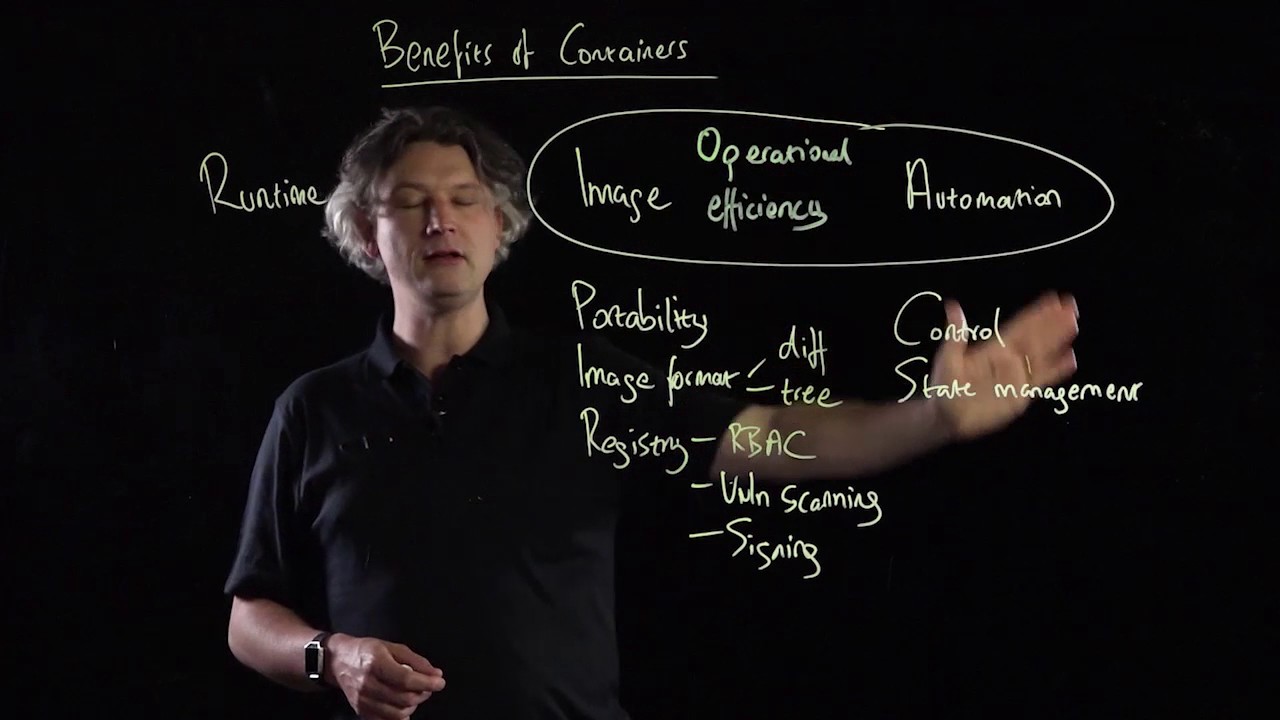 Benefits of Containers
Runtime
Image
Operational
efficiency
Automation
Portability
Image format
diff
tree
Registry
- RBAC
- Vuln scanning
- Signing
Control
State management